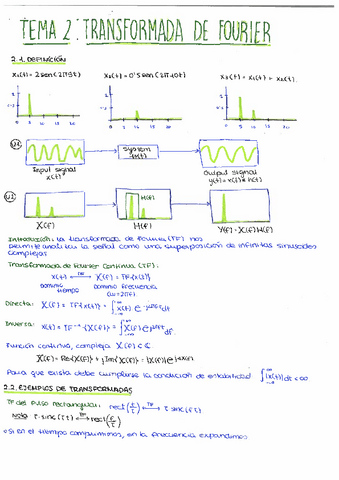 TEMA 2: TRANSFORMADA DE FOURIER
2.1. DEFINICIÓN
x1(t) = 2 sen(2π5t) x2(t) = 0'5 sen(2π10t) x3(t) = x1(t) + x2(t)
Input signal x(t) System h(t) Output signal y(t) = x(t) * h(t)
H(f)
X(f) H(f) Y(f) = X(f)H(f)
Introducción: la transformada de Fourier (TF) nos
permite analizar la señal como una superposición de infinitas sinusoides
complejas
Transformada de Fourier Continua (TF):
x(t) ←TF→ X(f) = TF{x(t)}
dominio tiempo dominio frecuencia
(ω=2πf)
Directa: X(f) = TF{x(t)} = ∫ x(t) e^-j2πft dt
Inversa: x(t) = TF^-1{X(f)} = ∫ X(f) e^j2πft df
Función continua, compleja X(f) ∈ ℂ
X(f) = Re{X(f)} + j Im{X(f)} = |X(f)| e^jθX(f)
Para que exista debe cumplirse la condición de estabilidad ∫ |x(t)| dt < ∞
2.2. EJEMPLOS DE TRANSFORMADAS
TF del pulso rectangular: rect(t/τ) ←TF→ τ sinc(fτ)
Nota τ·sinc(τt) ←TF→ rect(f/τ)
Si en el tiempo comprimimos, en la frecuencia expandimos